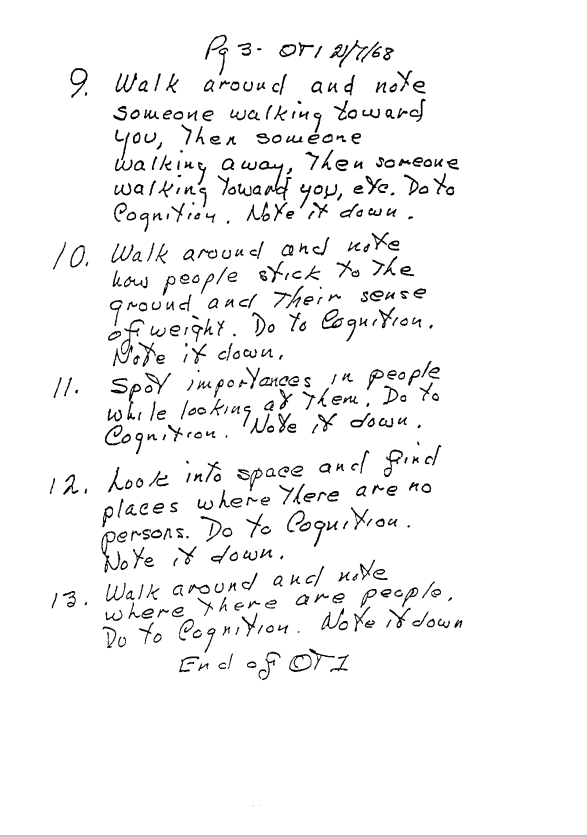 Pg 3- OT1 21/7/68
9. Walk around and note
someone walking toward
you, Then someone
walking away, Then someone
walking toward you, etc. Do to
Cognition. Note it down.
10. Walk around and note
how people stick to the
ground and Their sense
of weight. Do to Cognition.
Note it down.
11. Spot importances in people
while looking at Them. Do to
Cognition. Note it down.
12. Look into space and find
places where There are no
persons. Do to Cognition.
Note it down.
13. Walk around and note
where there are people.
Do to Cognition. Note it down
End of OT1